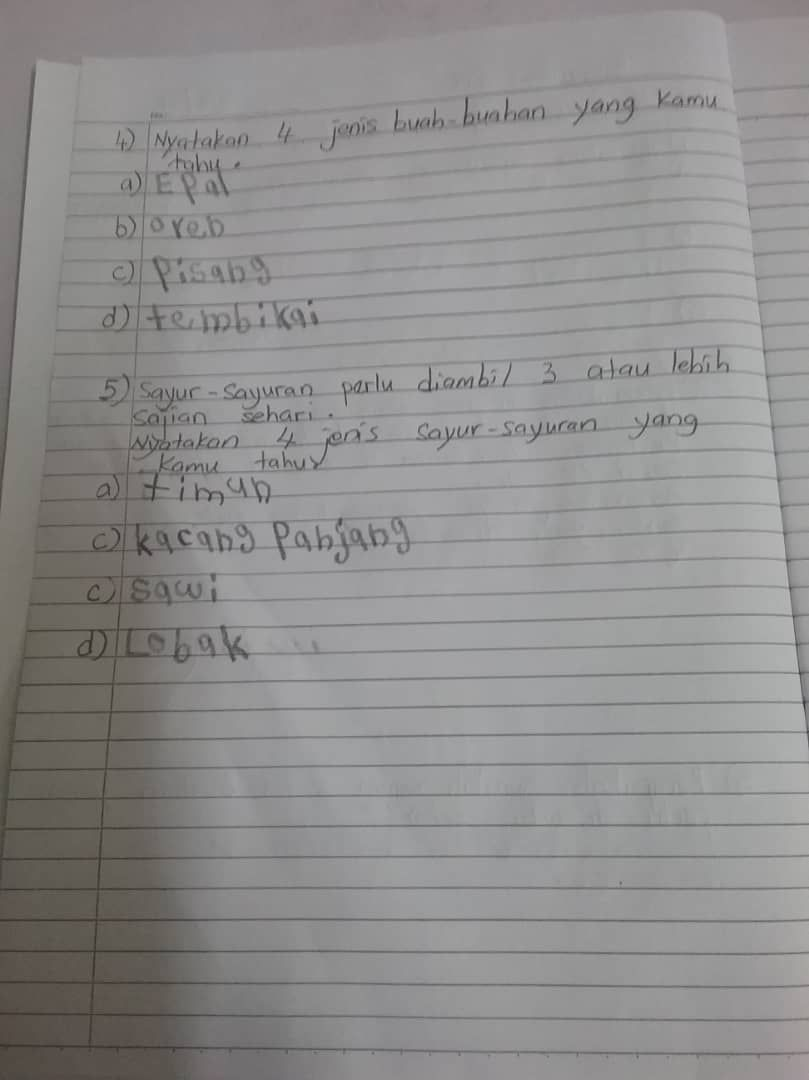 4) Nyatakan 4 jenis buah-buahan yang kamu
tahu.
a) Epal
b) oreb
c) Pisang
d) tembikai
5) Sayur-sayuran perlu diambil 3 atau lebih
sajian sehari.
Nyatakan 4 jenis sayur-sayuran yang
kamu tahu
a) timun
c) kacang Panjang
c) sawi
d) Lobak